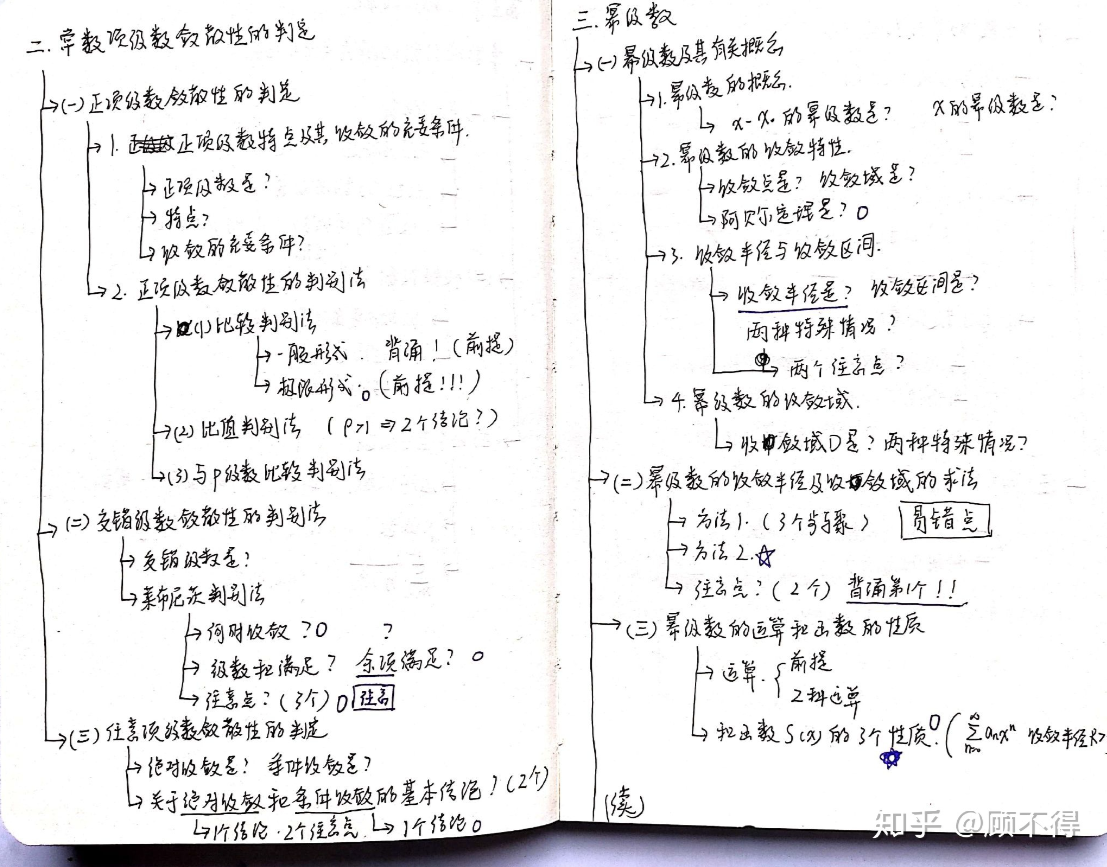 二. 常数项级数敛散性的判定
(一) 正项级数敛散性的判定
1. 正项级数特点及其收敛的充要条件.
正项级数是?
特点?
收敛的充要条件?
2. 正项级数敛散性的判别法
(1) 比较判别法
一般形式. 背诵! (前提)
极限形式. (前提!!!)
(2) 比值判别法 (ρ>1 ⇒ 2个结论?)
(3) 与p级数比较判别法
(二) 交错级数敛散性的判别法
交错级数是?
莱布尼茨判别法
何时收敛? ?
级数和满足? 余项满足?
注意点? (3个) 注意
(三) 任意项级数敛散性的判定
绝对收敛是? 条件收敛是?
关于绝对收敛和条件收敛的基本结论? (2个)
1个结论. 2个注意点 1个结论
三. 幂级数
(一) 幂级数及其有关概念
1. 幂级数的概念.
x-x₀的幂级数是? x的幂级数是?
2. 幂级数的收敛特性.
收敛点是? 收敛域是?
阿贝尔定理是?
3. 收敛半径与收敛区间.
收敛半径是? 收敛区间是?
两种特殊情况?
两个注意点?
4. 幂级数的收敛域.
收敛域D是? 两种特殊情况?
(二) 幂级数的收敛半径及收敛域的求法
方法1. (3个步骤) 易错点
方法2. ☆
注意点? (2个) 背诵第1个!!
(三) 幂级数的运算和函数的性质
运算. { 前提
2种运算
和函数S(x)的3个性质. (∑ₙ₌₀^∞ aₙxⁿ 收敛半径R>
(续)
知乎 @顾不得